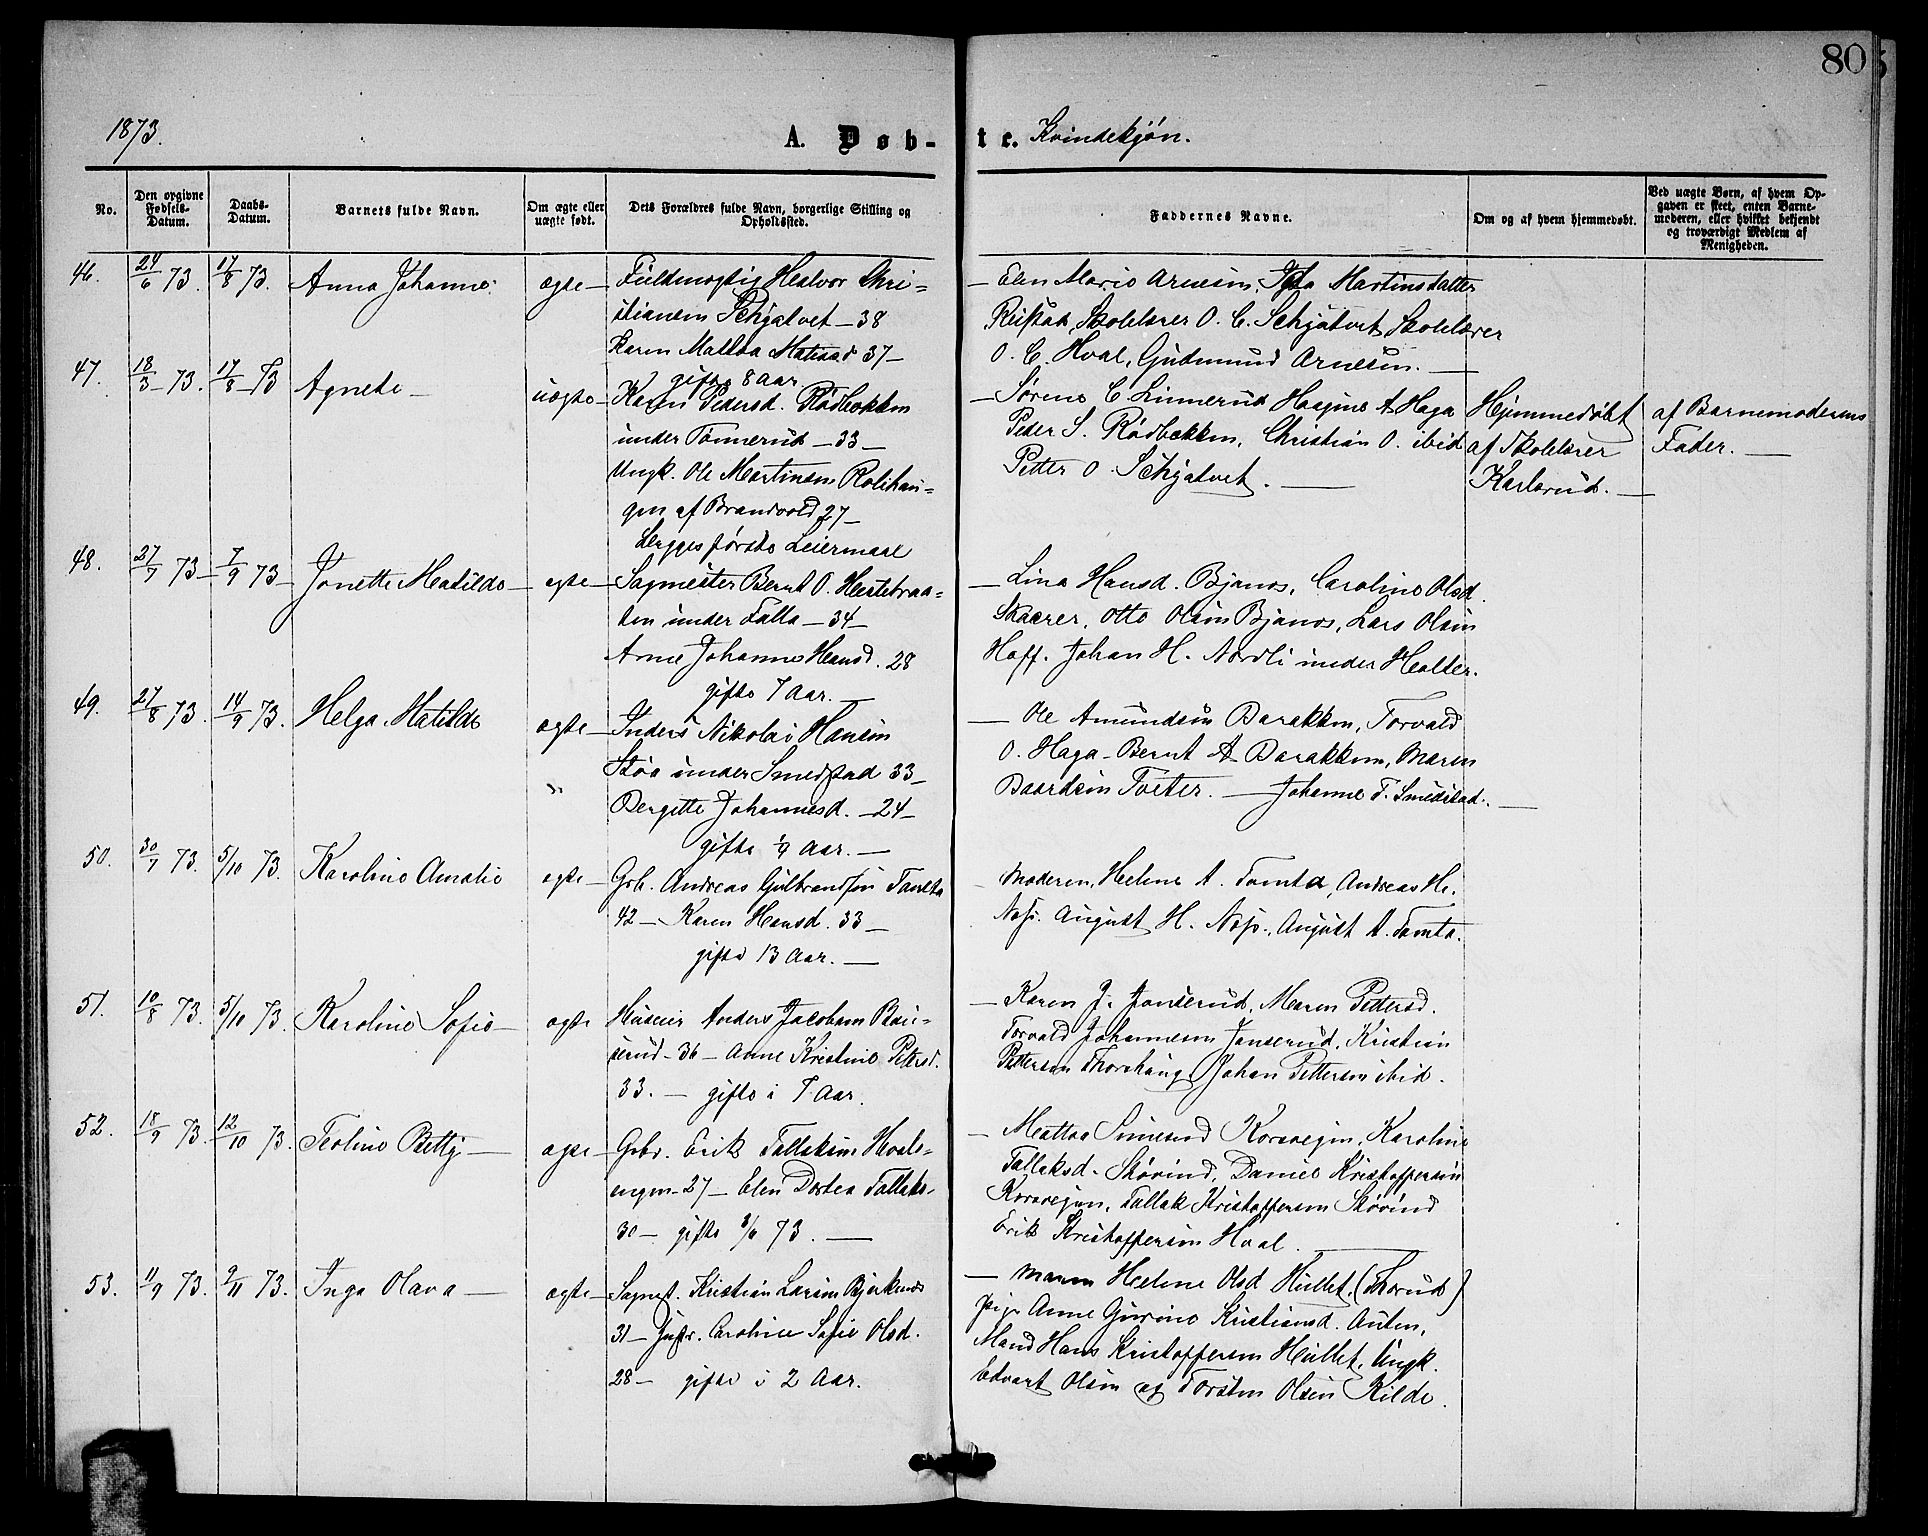 80
1873.
A. Døb-
te. Kvindekjøn.
No.
Den opgivne Fødsels-Datum.
Daabs-Datum.
Barnets fulde Navn.
Om ægte eller uægte født.
Dets Forældres fulde Navn, borgerlige Stilling og Opholdssted.
Faddernes Navne.
Om og af hvem hjemmedøbt.
Ved uægte Børn, af hvem Op-
gaven er skeet, enten Barne-
moderen, eller hvilket bekjendt
og troværdigt Medlem af
Menigheden.
46. 24/6 73. 17/8 73. Anna Johanne ægte
Fuldmægtig Halvor Chri-
stiansen Schjatvet - 38
Karen Mathea 37 -
gifte 8 Aar
Elen Marie Arnesen, Martinsdatter
Rustad, Skolelærer O. C. Schjatvet, Skolelærer
O. C. Hval, Gudmund Arnesen.
47. 18/3 - 73. 17/8 - 73 Agnete - uægte -
Karen Pedersd. Rødbækken
under Tønnerud - 33 -
Ungk. Ole Martinsen Rolihau-
gen af Brandvold 27 -
Begges første Leiermaal
- Sørine C Linnerud Haagine A Haga
Peder S. Rødbækken, Christian O. ibid
Petter O. Schjatvet.
Hjemmedøbt
af Skolelærer
Karlsrud. -
af Barnemoderens
Fader. -
48. 27/7 73 - 7/9 73 - Jonette Matilde - ægte -
Sagmester Bernt O. Hestebraa-
ten under Falla - 34 -
Anne Johanne Hansd. 28
gifte 7 Aar. -
- Lina Hansd. Bjanes, Caroline Olsd.
Skaarer, Otto Olsen Bjanes, Lars Olsen
Hoff. Johan H. Nordli under Holter.
49. 27/8 73. 14/9 73. Helga Matilde ægte -
Inders Nikolai Hansen
Støa under Smedstad 33 -
Bergitte Johannesd. - 24 -
gifte Aar. -
- Ole Amundsen Barakken, Torvald
O. Haga - Bernt A Barakken, Maren
Baardsen Toeter. - Johanne T. Smedstad. -
50. 30/7 73. 5/10 73. Karoline Amalie ægte -
Grb. Andreas Gulbrandsen Tomta
42 - Karen Hansd. 33 -
gifte 13 Aar. -
- Moderen, Helene A. Tomta, Andreas H.
Næs. August H. Næs., August A. Tomta.
51. 10/8 73. 5/10 73. Karoline Sofie - ægte
Huseier Anders Jacobsen Bau-
serud - 36 - Anne Kristine Pettersd.
33. - gifte i 7 Aar.
- Karen J. Jonserud, Maren Pettersd.
Torvald Johannesen Jonserud, Kristian
Pettersen Thorshaug, Johan Pettersen ibid.
52. 18/9 73. 12/10 73. Teoline Betty - ægte -
Grbr. Erik Tallaksen Hvals-
engen - 27 - Elen Dortea Tallaks.
30 - gifte 3/6 73. -
- Mattea Simensd Korsvegen, Karoline
Tallaksd. Skøvind, Daniel Kristoffersen
Korsvegen, Tallak Kristoffersen Skøvind
Erik Kristoffersen Hval.
53. 11/9 73. 9/11 73. Inga Olava - ægte -
Sagmest. Kristian Larsen Bjerknes
31 - Hustr. Caroline Sofie Olsd.
28 - gifte i 2 Aar.
- Maren Helene Olsd Hullet. (Thorud)
Pige Anne Gurine Kristiansd. Auten,
Mand Hans Kristoffersen Hullet, Ungk.
Edvart Olsen og Torsten Olsen Kilde.